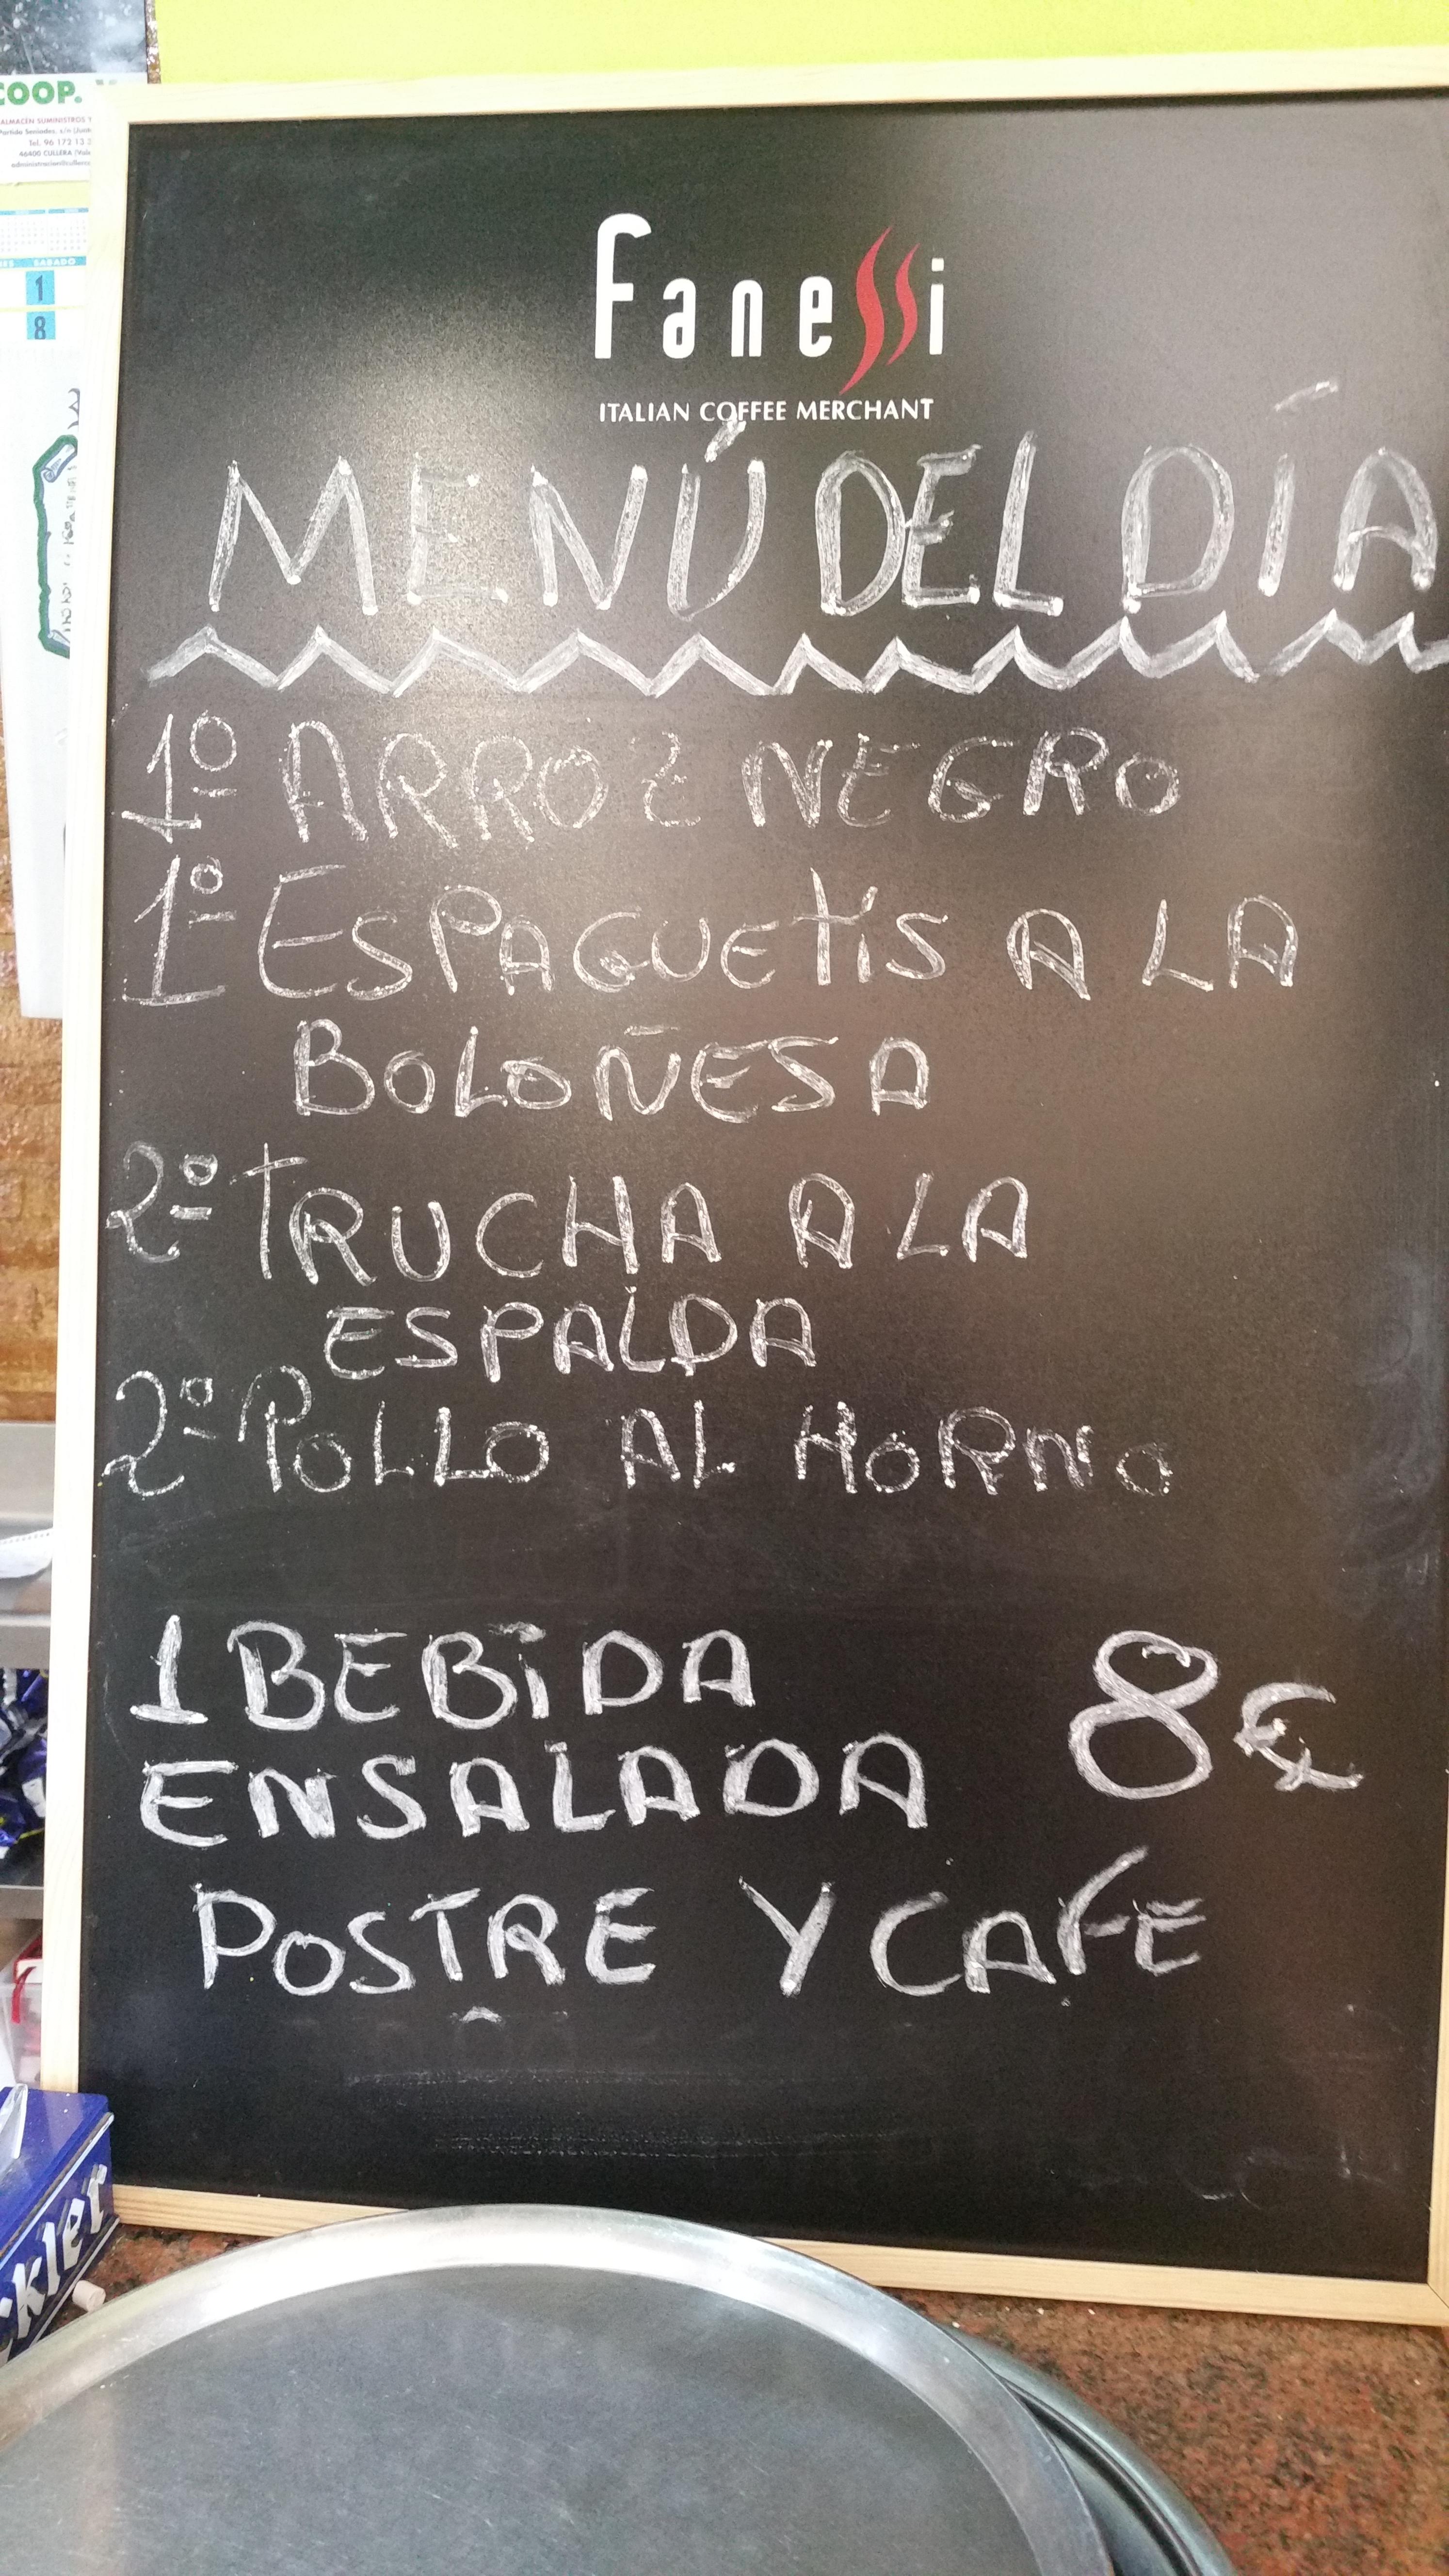 COOP.
ALMACÉN SUMINISTROS Y
Tel. 96 172 13 3
46400 CULLERA
SABADO
1
8
Fanessi
ITALIAN COFFEE MERCHANT
MENÚ DEL DÍA
1º ARROZ NEGRO
1º ESPAGUETIS A LA
BOLOÑESA
2º TRUCHA A LA
ESPALDA
2º POLLO AL HORNO
1 BEBIDA
8€
ENSALADA
POSTRE Y CAFE